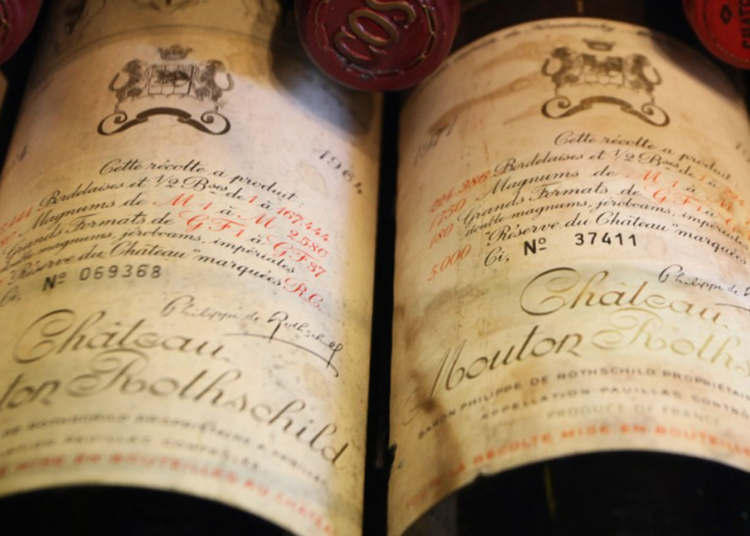 COS
1964
Cette récolte a produit:
Bordelaises et 1/2 Bses de 1 à 167.444
Magnums de M1 à M 2.580
Grands Formats de GF1 à GF37
double magnums, jéroboams, impériales
"Réserve du Château" marquées R.C.
Ci, Nº 069368
Philippe de Rothschild
Château
ton Rothschild
MISE EN BOUTEILLES AU CHÂTEAU
Cette récolte a produit
224.386 Bordelaises et 1/2 Bses de 1 à
1750 Magnums de M 1 à
180 Grands Formats de GF1 à
double magnums, jéroboams, impériales
5.000 "Réserve du Château" marquées
Ci, Nº 37411
Philippe de
Château
Mouton Roths
BARON PHILIPPE DE ROTHSCHILD PROPRIÉTA
APPELLATION PAUILLAC CONTR
PRODUCE OF FRANCE
LA RÉCOLTE MISE EN BOUTEILL